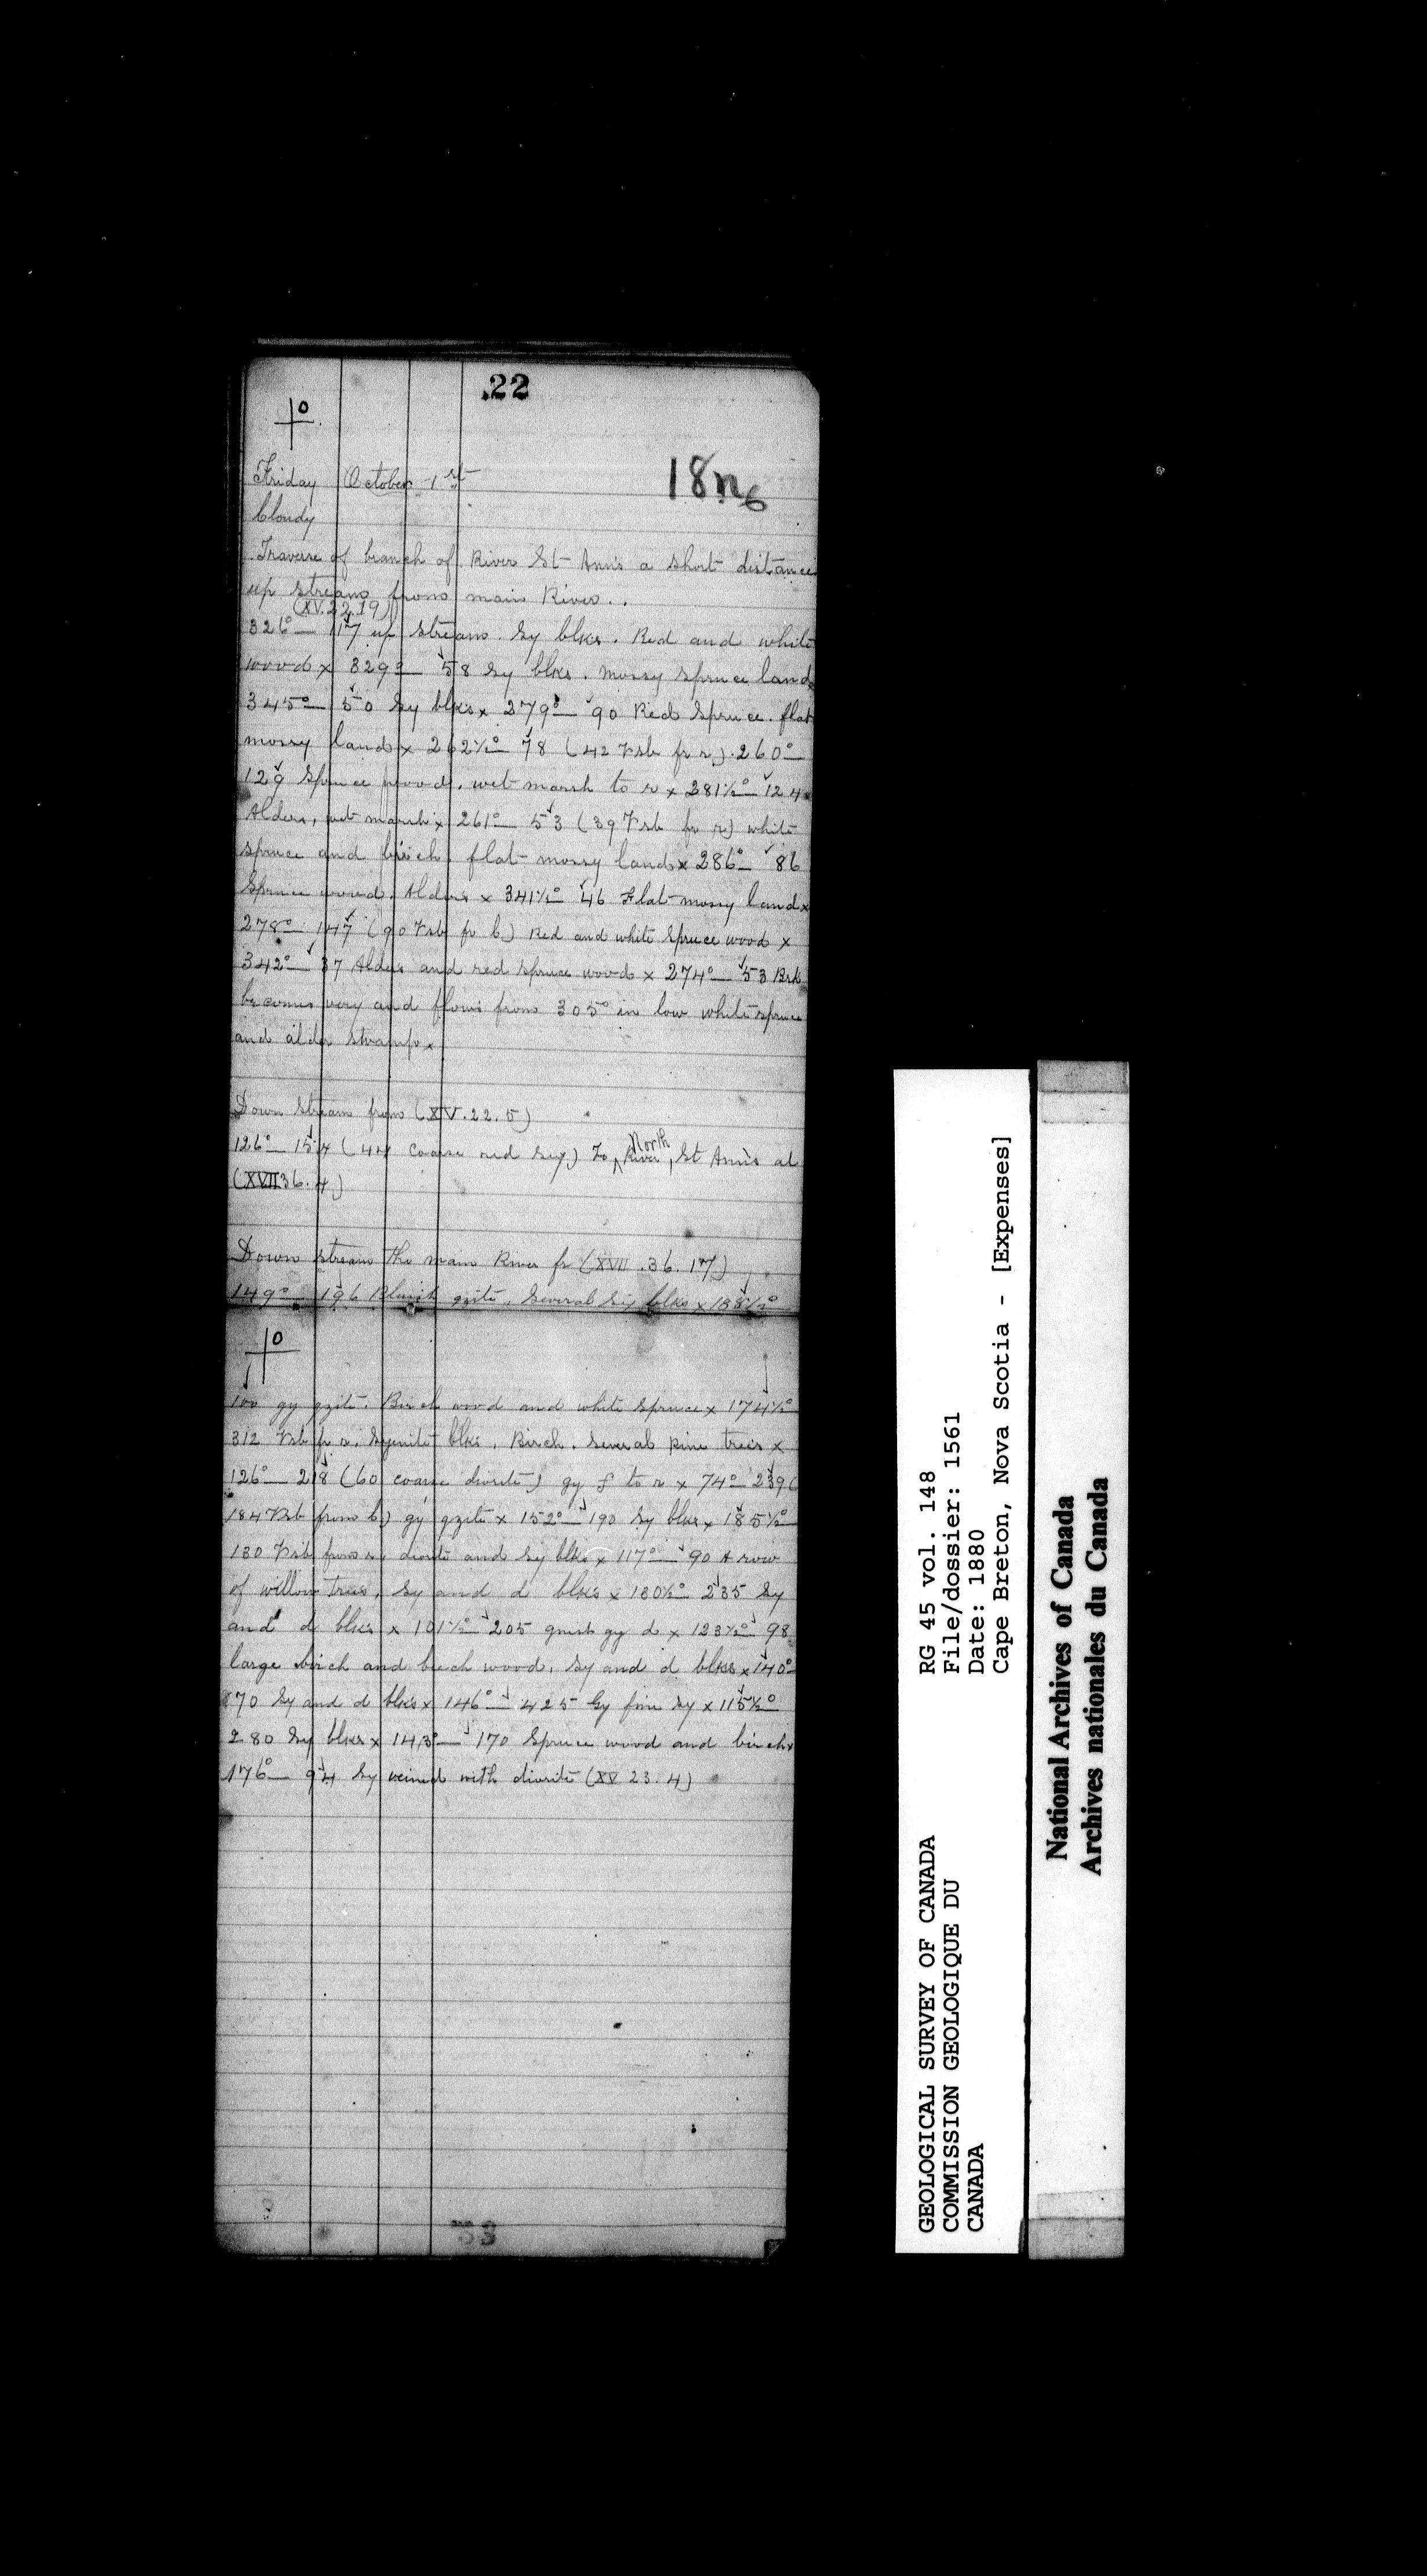 22
18n6
Friday October 1st
Cloudy
Traverse of branch of River St Anns a short distance
up stream from main River..
(XV.22.19)
326°— 117 up stream. Sy blks. Red and white
wood x 329°— 58 Sy blks. mossy spruce land
345°— 50 Sy blks x 279°— 90 Red Spruce. flat
mossy land x 262½° 78 (42 Vsb fr r). 260°—
129 Spruce wood. wet marsh to r x 281½°— 124
Alders, wet marsh x 261°— 53 (39 Vsb fr r) white
spruce and birch. flat mossy land x 286°— 86
Spruce wood. Alders x 341½° 46 Flat mossy land x
278°— 147 (90 Vsb fr b) Red and white Spruce wood x
342°— 37 Alders and red spruce wood x 274°— 53 Brk
becomes very and flows from 305° in low white spruce
and alder swamp x
Down stream from (XV.22.5)
126° 154 (44 coarse red sy.) to North River, St Anns at
(XVII 36.4)
Down stream the main River fr (XVII.36.17)
149°— 196 Bluish qzite. Several Sy blks x 188½°
100 gy qzite. Birch wood and white Spruce x 174½°
312 Vsb fr r. Syenite blks. Birch. Several pine trees x
126°— 218 (60 coarse diorite) gy f to r x 74°— 239 (
184 Vsb from b) gy qzite x 152°— 190 Sy blks x 185½°
130 Vsb from r, diorite and Sy blks x 117°— 90 A row
of willow trees, Sy and d blks x 130½°— 235 Sy
and d blks x 101½°— 205 gy d x 123½°— 98
large birch and beech wood, Sy and d blks x 140°—
870 Sy and d blks x 146°— 425 Gy fine sy x 115½°
280 Sy blks x 143°— 170 Spruce wood and birch x
176°— 94 Sy veined with diorite (XV 23.4)
GEOLOGICAL SURVEY OF CANADA
COMMISSION GEOLOGIQUE DU
CANADA
RG 45 vol. 148
File/dossier: 1561
Date: 1880
Cape Breton, Nova Scotia - [Expenses]
National Archives of Canada
Archives nationales du Canada